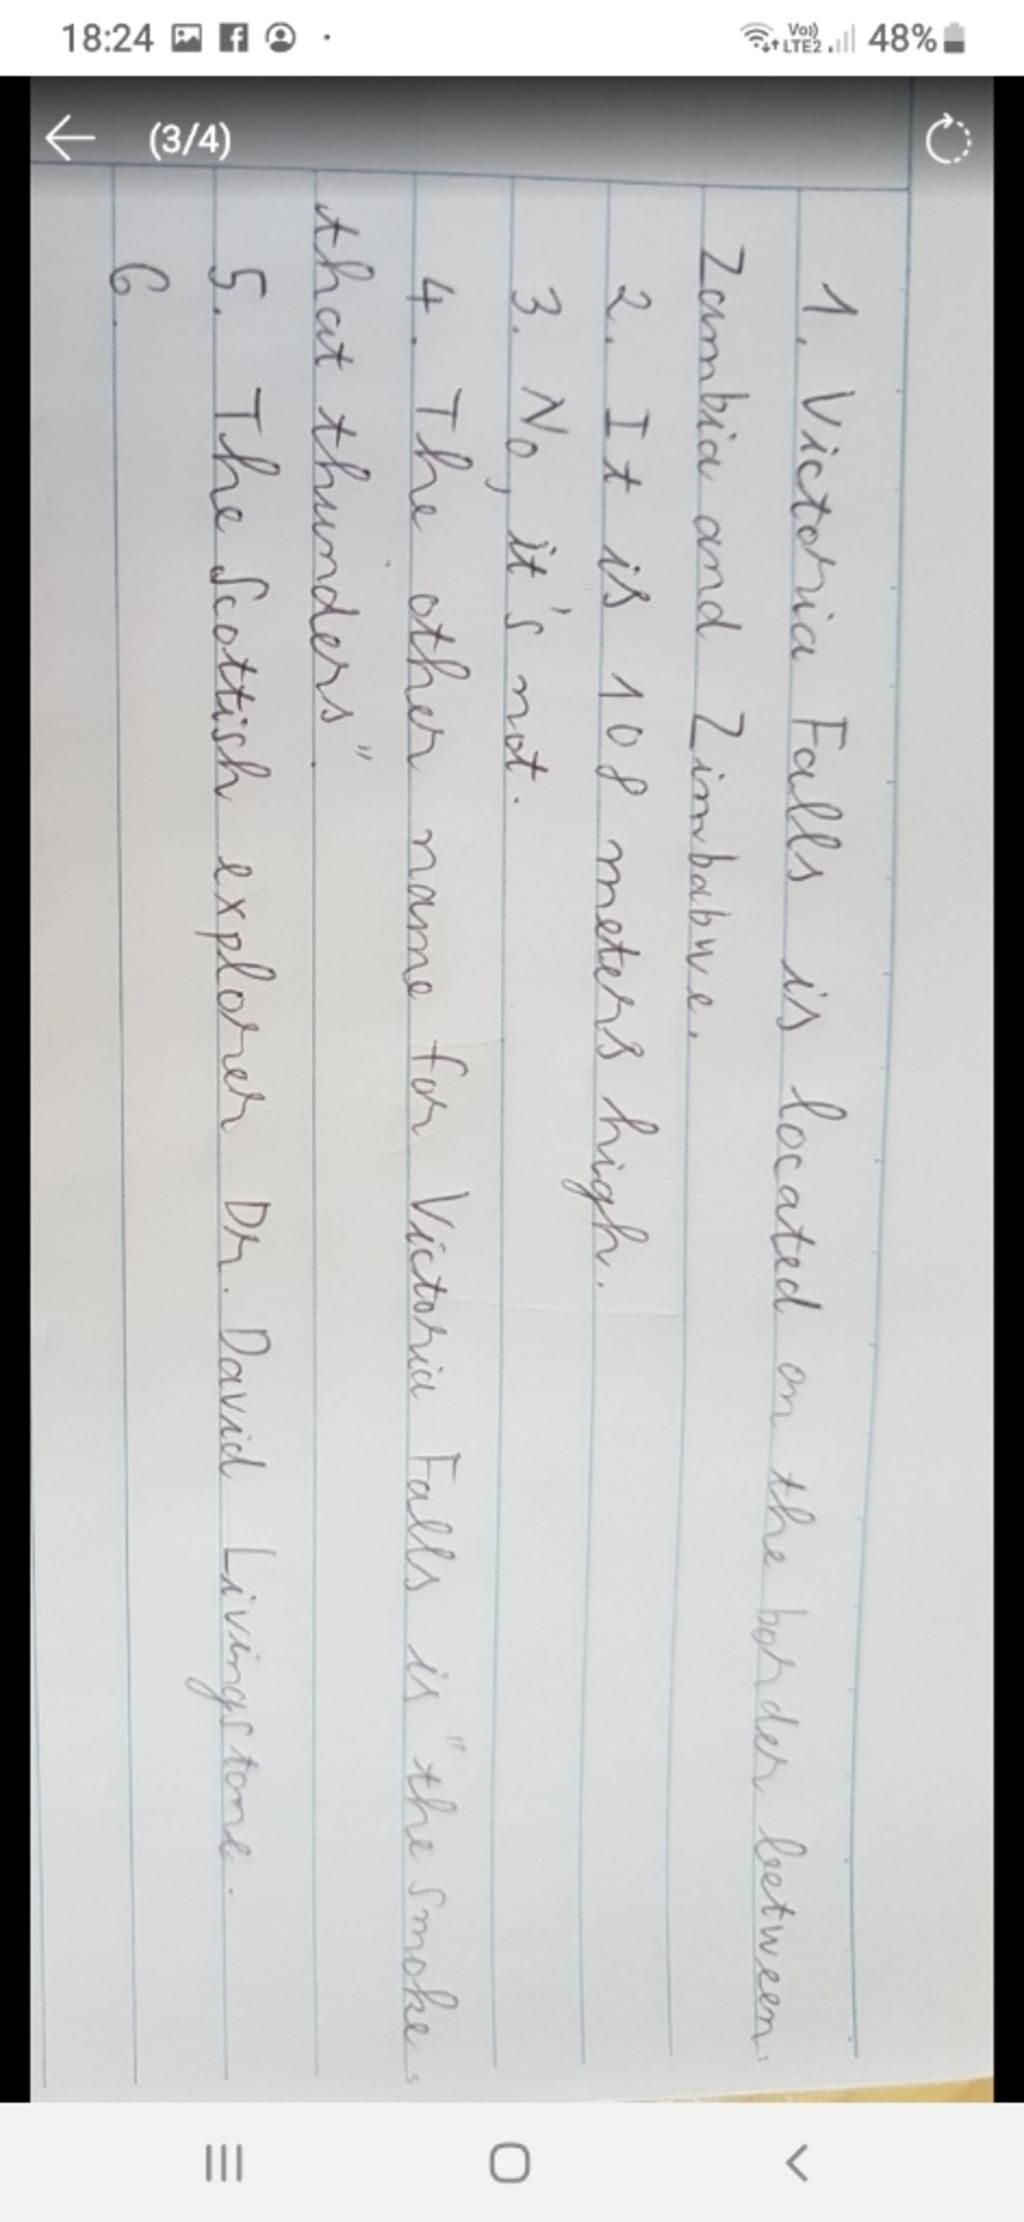 18:24
Vo)) LTE2 48%
(3/4)
1. Victoria Falls is located on the border between
Zambia and Zimbabwe.
2. It is 108 meters high.
3. No, it's not.
4. The other name for Victoria Falls is "the smoke
that thunders"
5. The Scottish explorer Dr. David Livingstone.
6.